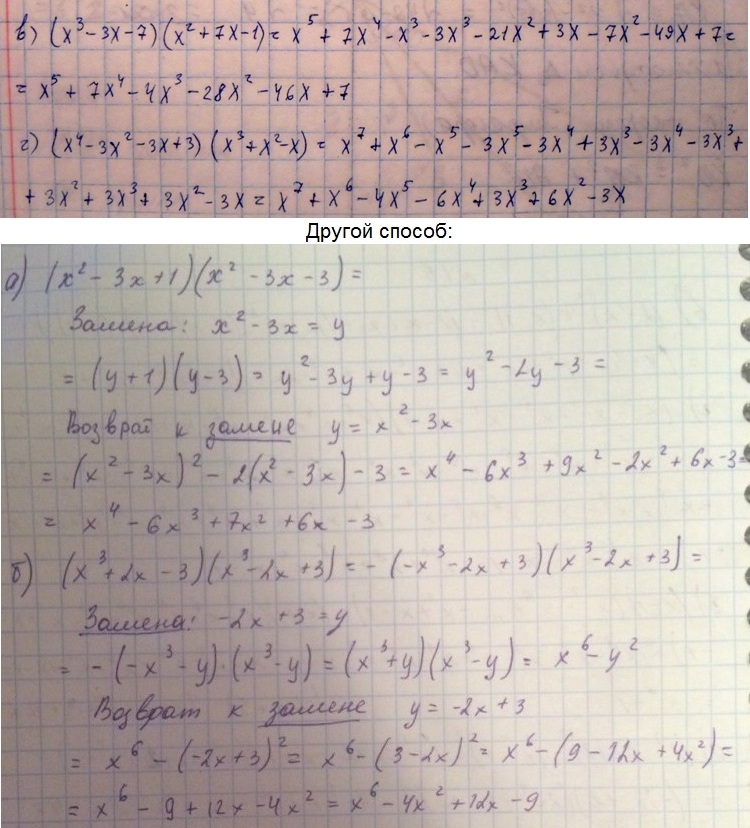 в) (x³-3x-7)(x²+7x-1)= x⁵+7x⁴-x³-3x³-21x²+3x-7x²-49x+7=
= x⁵+7x⁴-4x³-28x²-46x+7
г) (x⁴-3x²-3x+3)(x³+x²-x)= x⁷+x⁶-x⁵-3x⁵-3x⁴+3x³-3x⁴-3x³+
+3x²+3x³+3x²-3x= x⁷+x⁶-4x⁵-6x⁴+3x³+6x²-3x
Другой способ:
а) (x²-3x+1)(x²-3x-3)=
Замена: x²-3x=y
= (y+1)(y-3)= y²-3y+y-3= y²-2y-3=
Возврат к замене y= x²-3x
= (x²-3x)²-2(x²-3x)-3= x⁴-6x³+9x²-2x²+6x-3=
= x⁴-6x³+7x²+6x-3
б) (x³+2x-3)(x³-2x+3)= -(-x³-2x+3)(x³-2x+3)=
Замена: -2x+3=y
= -(-x³-y)·(x³-y)= (x³+y)(x³-y)= x⁶-y²
Возврат к замене y=-2x+3
= x⁶-(-2x+3)²= x⁶-(3-2x)²= x⁶-(9-12x+4x²)=
= x⁶-9+12x-4x²= x⁶-4x²+12x-9